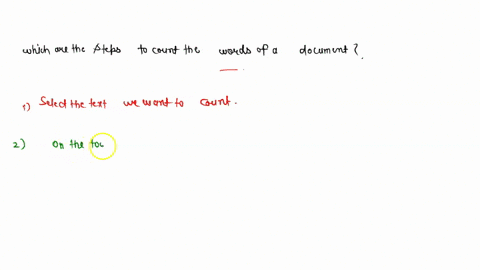 which are the steps to count the words of a document?.
1) Select the text we want to count.
2) on the too